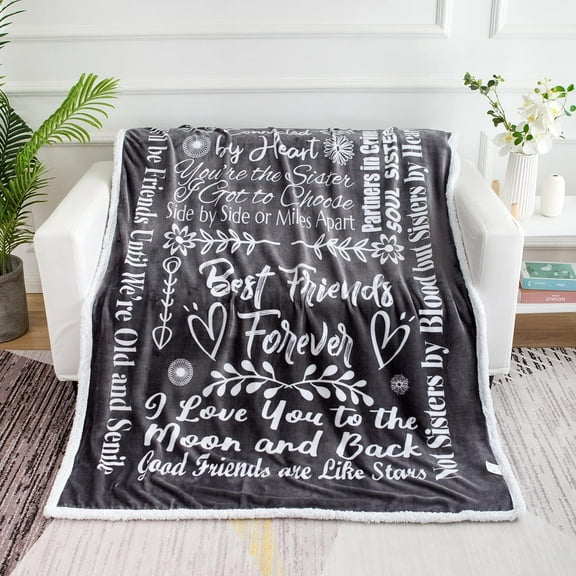 by Heart
You're the Sister
I Got to Choose
Side by Side or Miles Apart
Partners in
SOUL SISTER
Best Friends
Forever
I Love You to the
Moon and Back
Good Friends are Like Stars
be Friends Until We're Old and Senile
Not Sisters by Blood but Sisters by Heart